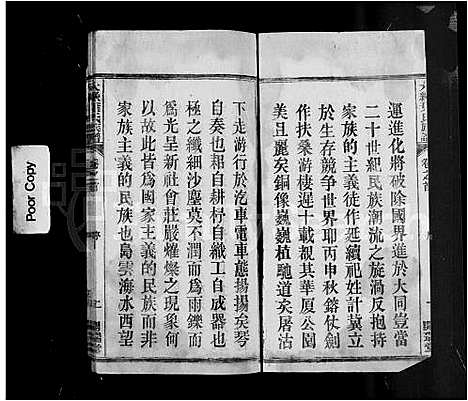 運進化將破除國界進於大同豈當
二十世紀民族潮流之旋渦反抱持
家族的主義徒作延續祀姓計冀立
於生存競爭世界耶丙申秋鎔仗劍
作扶桑游棲遲十載親其華厦公園
美且麗矣銅像巍巍植馳道矣屠沽
下走游行於汽車電車態揚揚矣琴
自奏也報自耕杼自織工自成器也
極之纖細沙塵莫不潤而爲雨鑠而
爲光呈新社會莊嚴燦爛之現象何
以故此皆爲國家主義的民族而非
家族主義的民族也鳥雲海水西望
Poor Copy